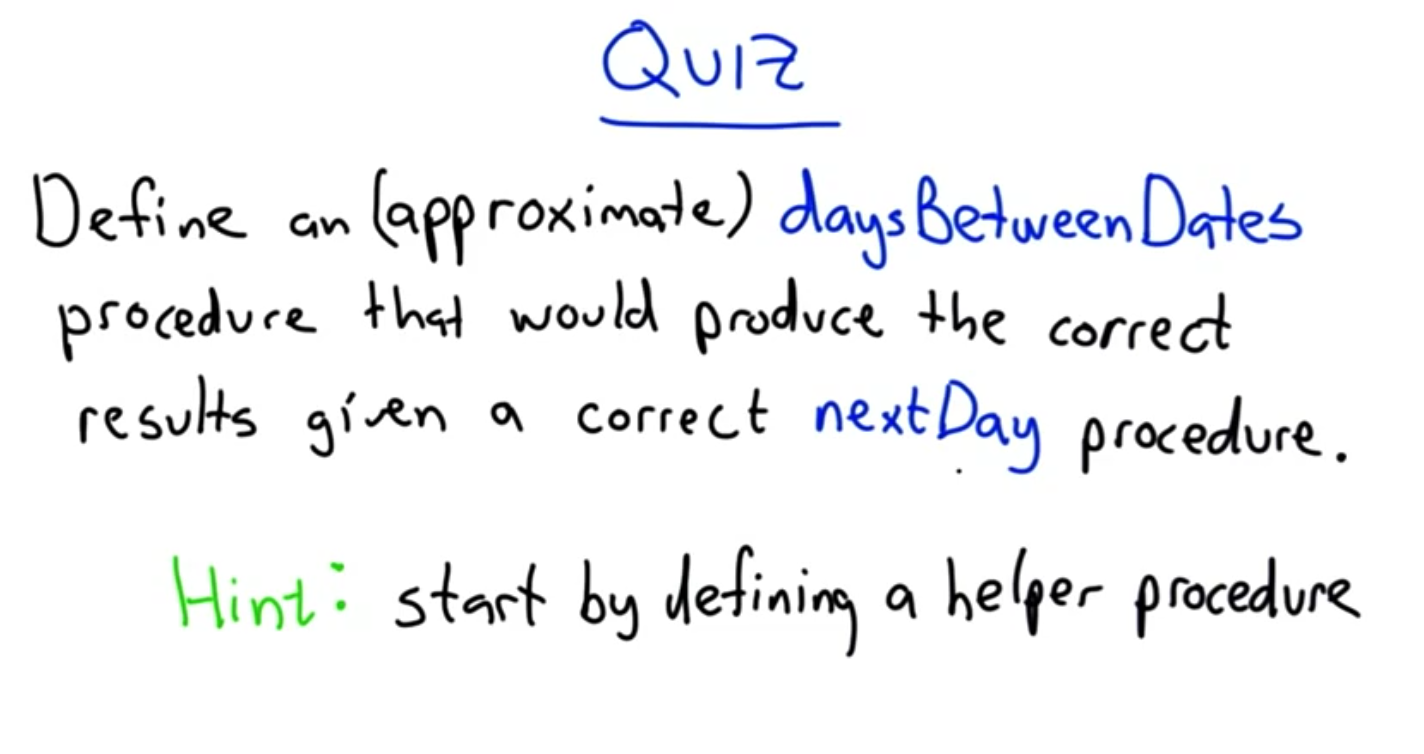 QUIZ
Define an (approximate) daysBetweenDates
procedure that would produce the correct
results given a correct nextDay procedure.
Hint: start by defining a helper procedure